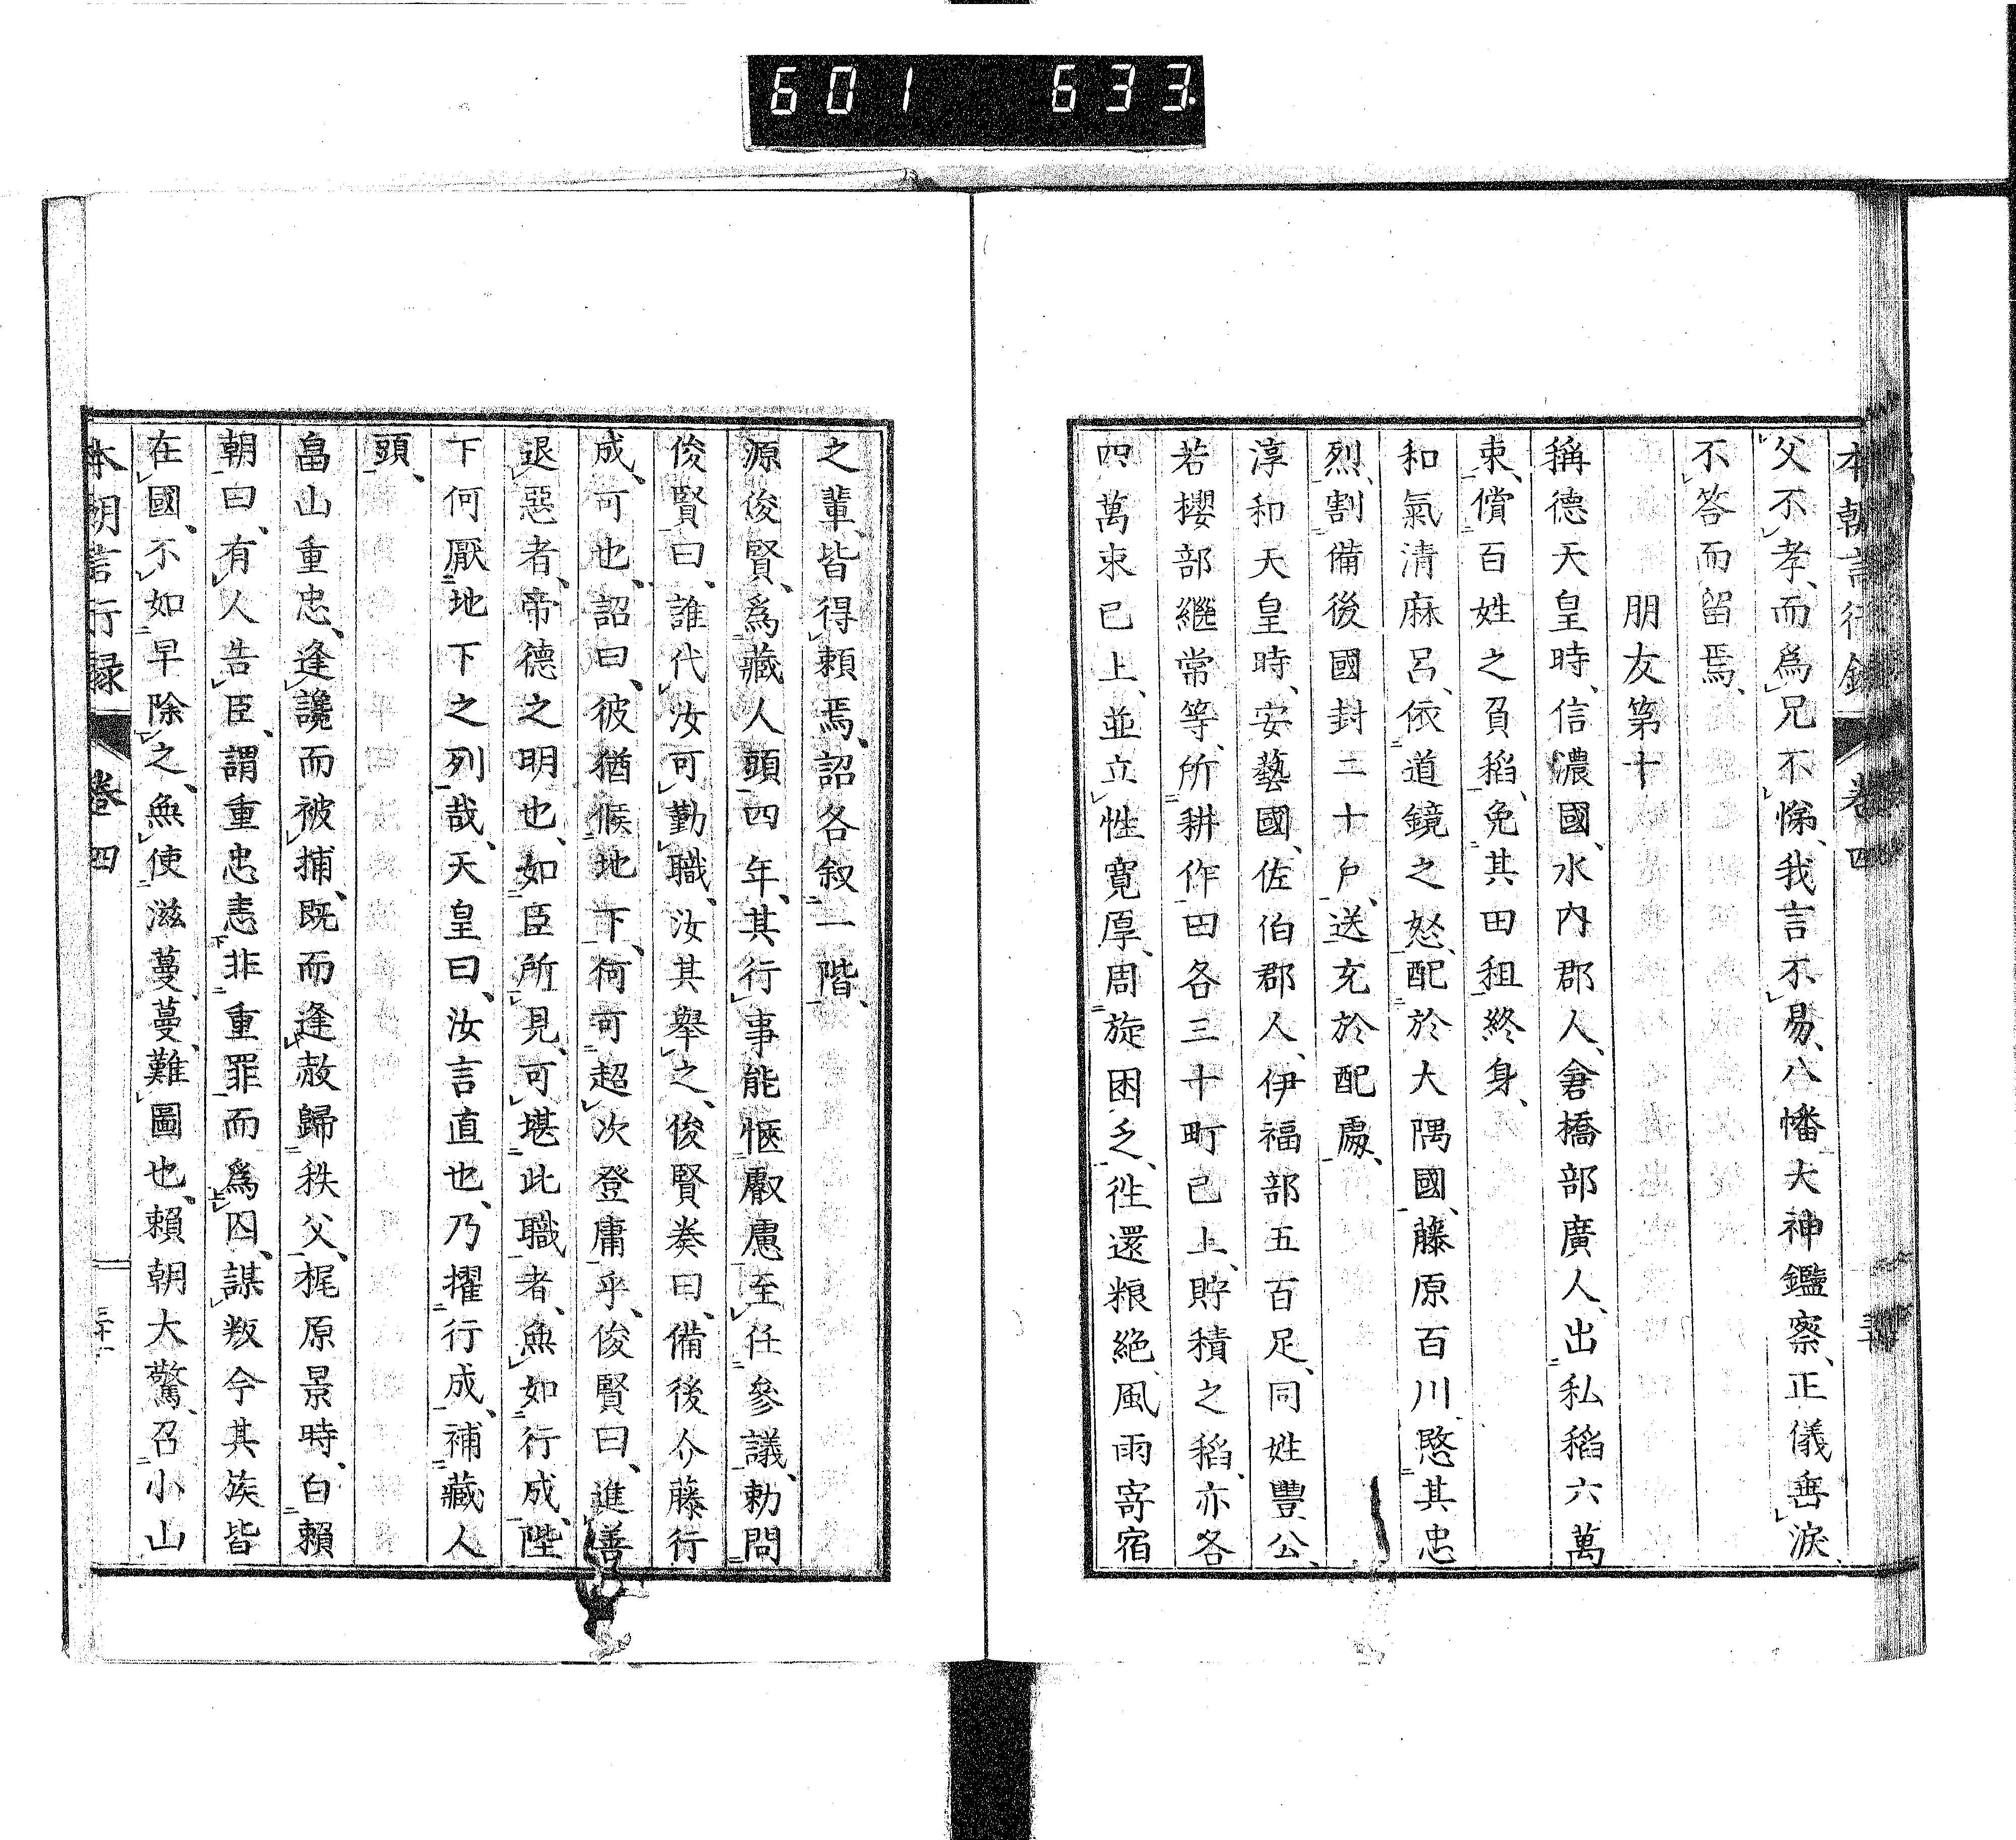 601 633
本朝言行録 卷四
父不孝、而爲兄不悌、我言不易、八幡大神鑑察、正儀垂淚、
不答而留焉、
朋友第十
稱德天皇時、信濃國、水内郡人、倉橋部廣人、出私稻六萬
束、償百姓之負稻、免其田租終身、
和氣清麻呂、依道鏡之怒、配於大隅國、藤原百川愍其忠
烈、割備後國封二十戶、送充於配處、
淳和天皇時、安藝國、佐伯郡人、伊福部五百足、同姓豐公、
若櫻部繼常等、所耕作田各三十町已上、貯積之稻、亦各
四萬束已上、並立性寛厚、周旋困乏、徃還粮絶、風雨寄宿
之輩、皆得頼焉、詔各叙一階、
源俊賢、爲藏人頭四年、其行事能愜叡慮、至任參議、勅問
俊賢曰、誰代汝可勤職、汝其舉之、俊賢奏曰、備後介藤行
成、可也、詔曰、彼猶候地下、何可超次登庸乎、俊賢曰、進善
退惡者、帝德之明也、如臣所見、可堪此職者、無如行成、陛
下何厭地下之列哉、天皇曰、汝言直也、乃擢行成、補藏人
頭、
畠山重忠、逢讒而被捕、既而逢赦歸秩父、梶原景時、白賴
朝曰、有人告臣、謂重忠恚非重罪而爲囚、謀叛今其族皆
在國、不如早除之、無使滋蔓、蔓難圖也、賴朝大驚、召小山
本朝言行録 卷四 三十一